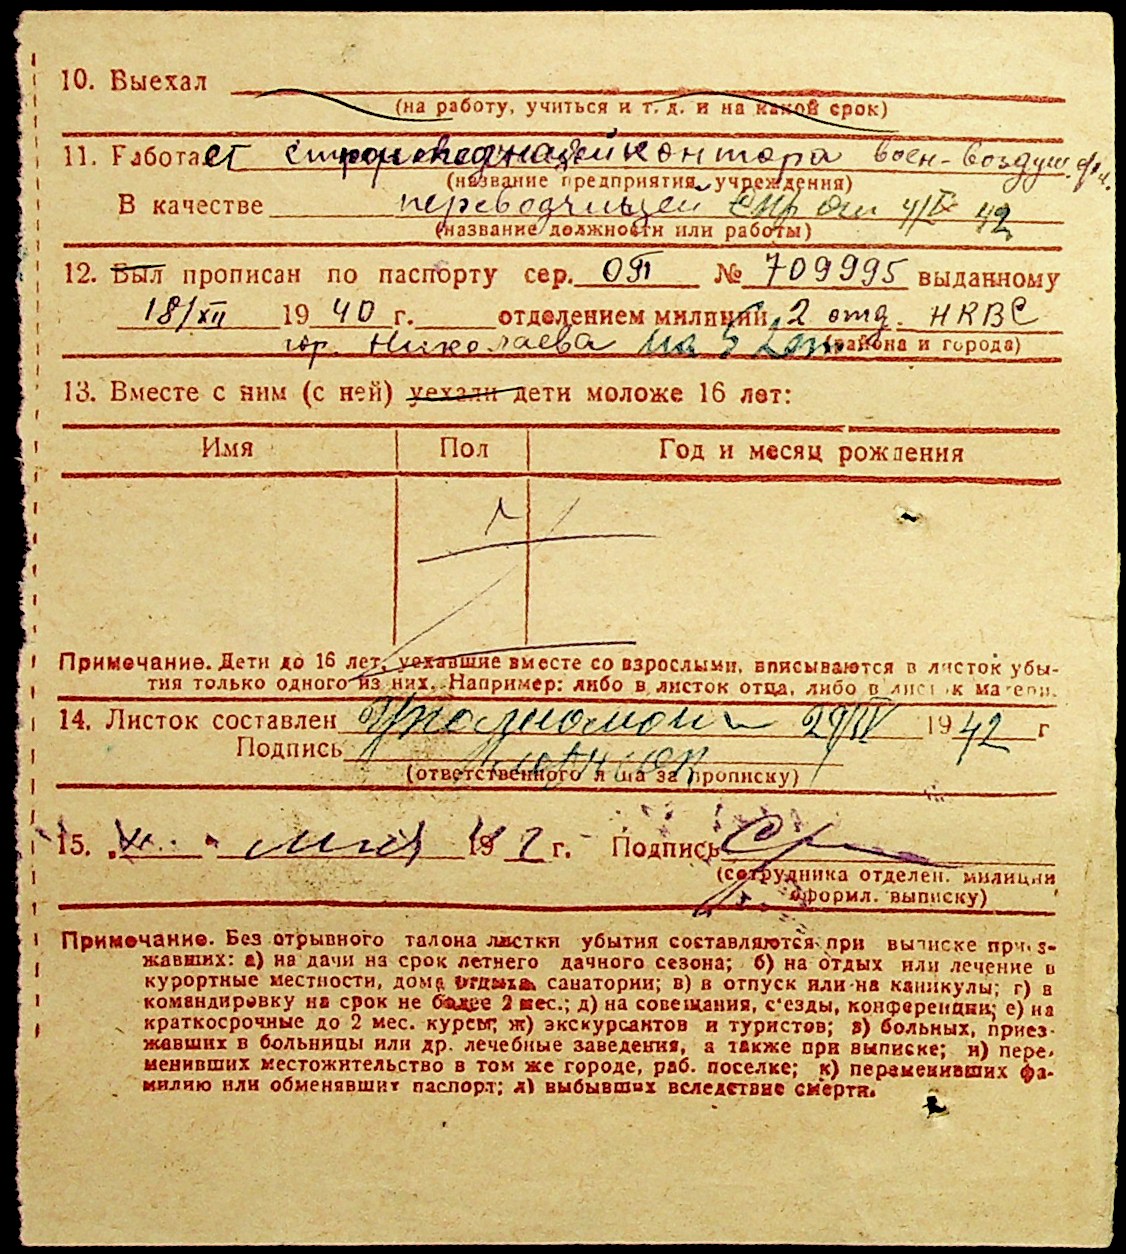 10. Выехал
(на работу, учиться и т. д. и на какой срок)
11. Работает контора воен-воздуш.
(название предприятия, учреждения)
В качестве переводчицей от 4/IV 42
(название должности или работы)
12. Был прописан по паспорту сер. № 709995 выданному
18/XII 1940 г. отделением милиции 2 отд. НКВС
гор. Николаева на 5 лет (района и города)
13. Вместе с ним (с ней) уехали дети моложе 16 лет:
Имя Пол Год и месяц рождения
Примечание. Дети до 16 лет, уехавшие вместе со взрослыми, вписываются в листок убы-
тия только одного из них. Например: либо в листок отца, либо в листок матери.
14. Листок составлен 29/IV 1942 г
Подпись
(ответственного л ца за прописку)
15. мая 1942 г. Подпись
(сотрудника отделен. милиции
оформл. выписку)
Примечание. Без отрывного талона листки убытия составляются при выписке приез-
жавших: а) на дачи на срок летнего дачного сезона; б) на отдых или лечение в
курортные местности, дома отдыха, санатории; в) в отпуск или на каникулы; г) в
командировку на срок не более 2 мес.; д) на совещания, с'езды, конференции; е) на
краткосрочные до 2 мес. курсы; ж) экскурсантов и туристов; з) больных, приез-
жавших в больницы или др. лечебные заведения, а также при выписке; и) пере-
менивших местожительство в том же городе, раб. поселке; к) переменивших фа-
милию или обменявших паспорт; л) выбывших вследствие смерти.